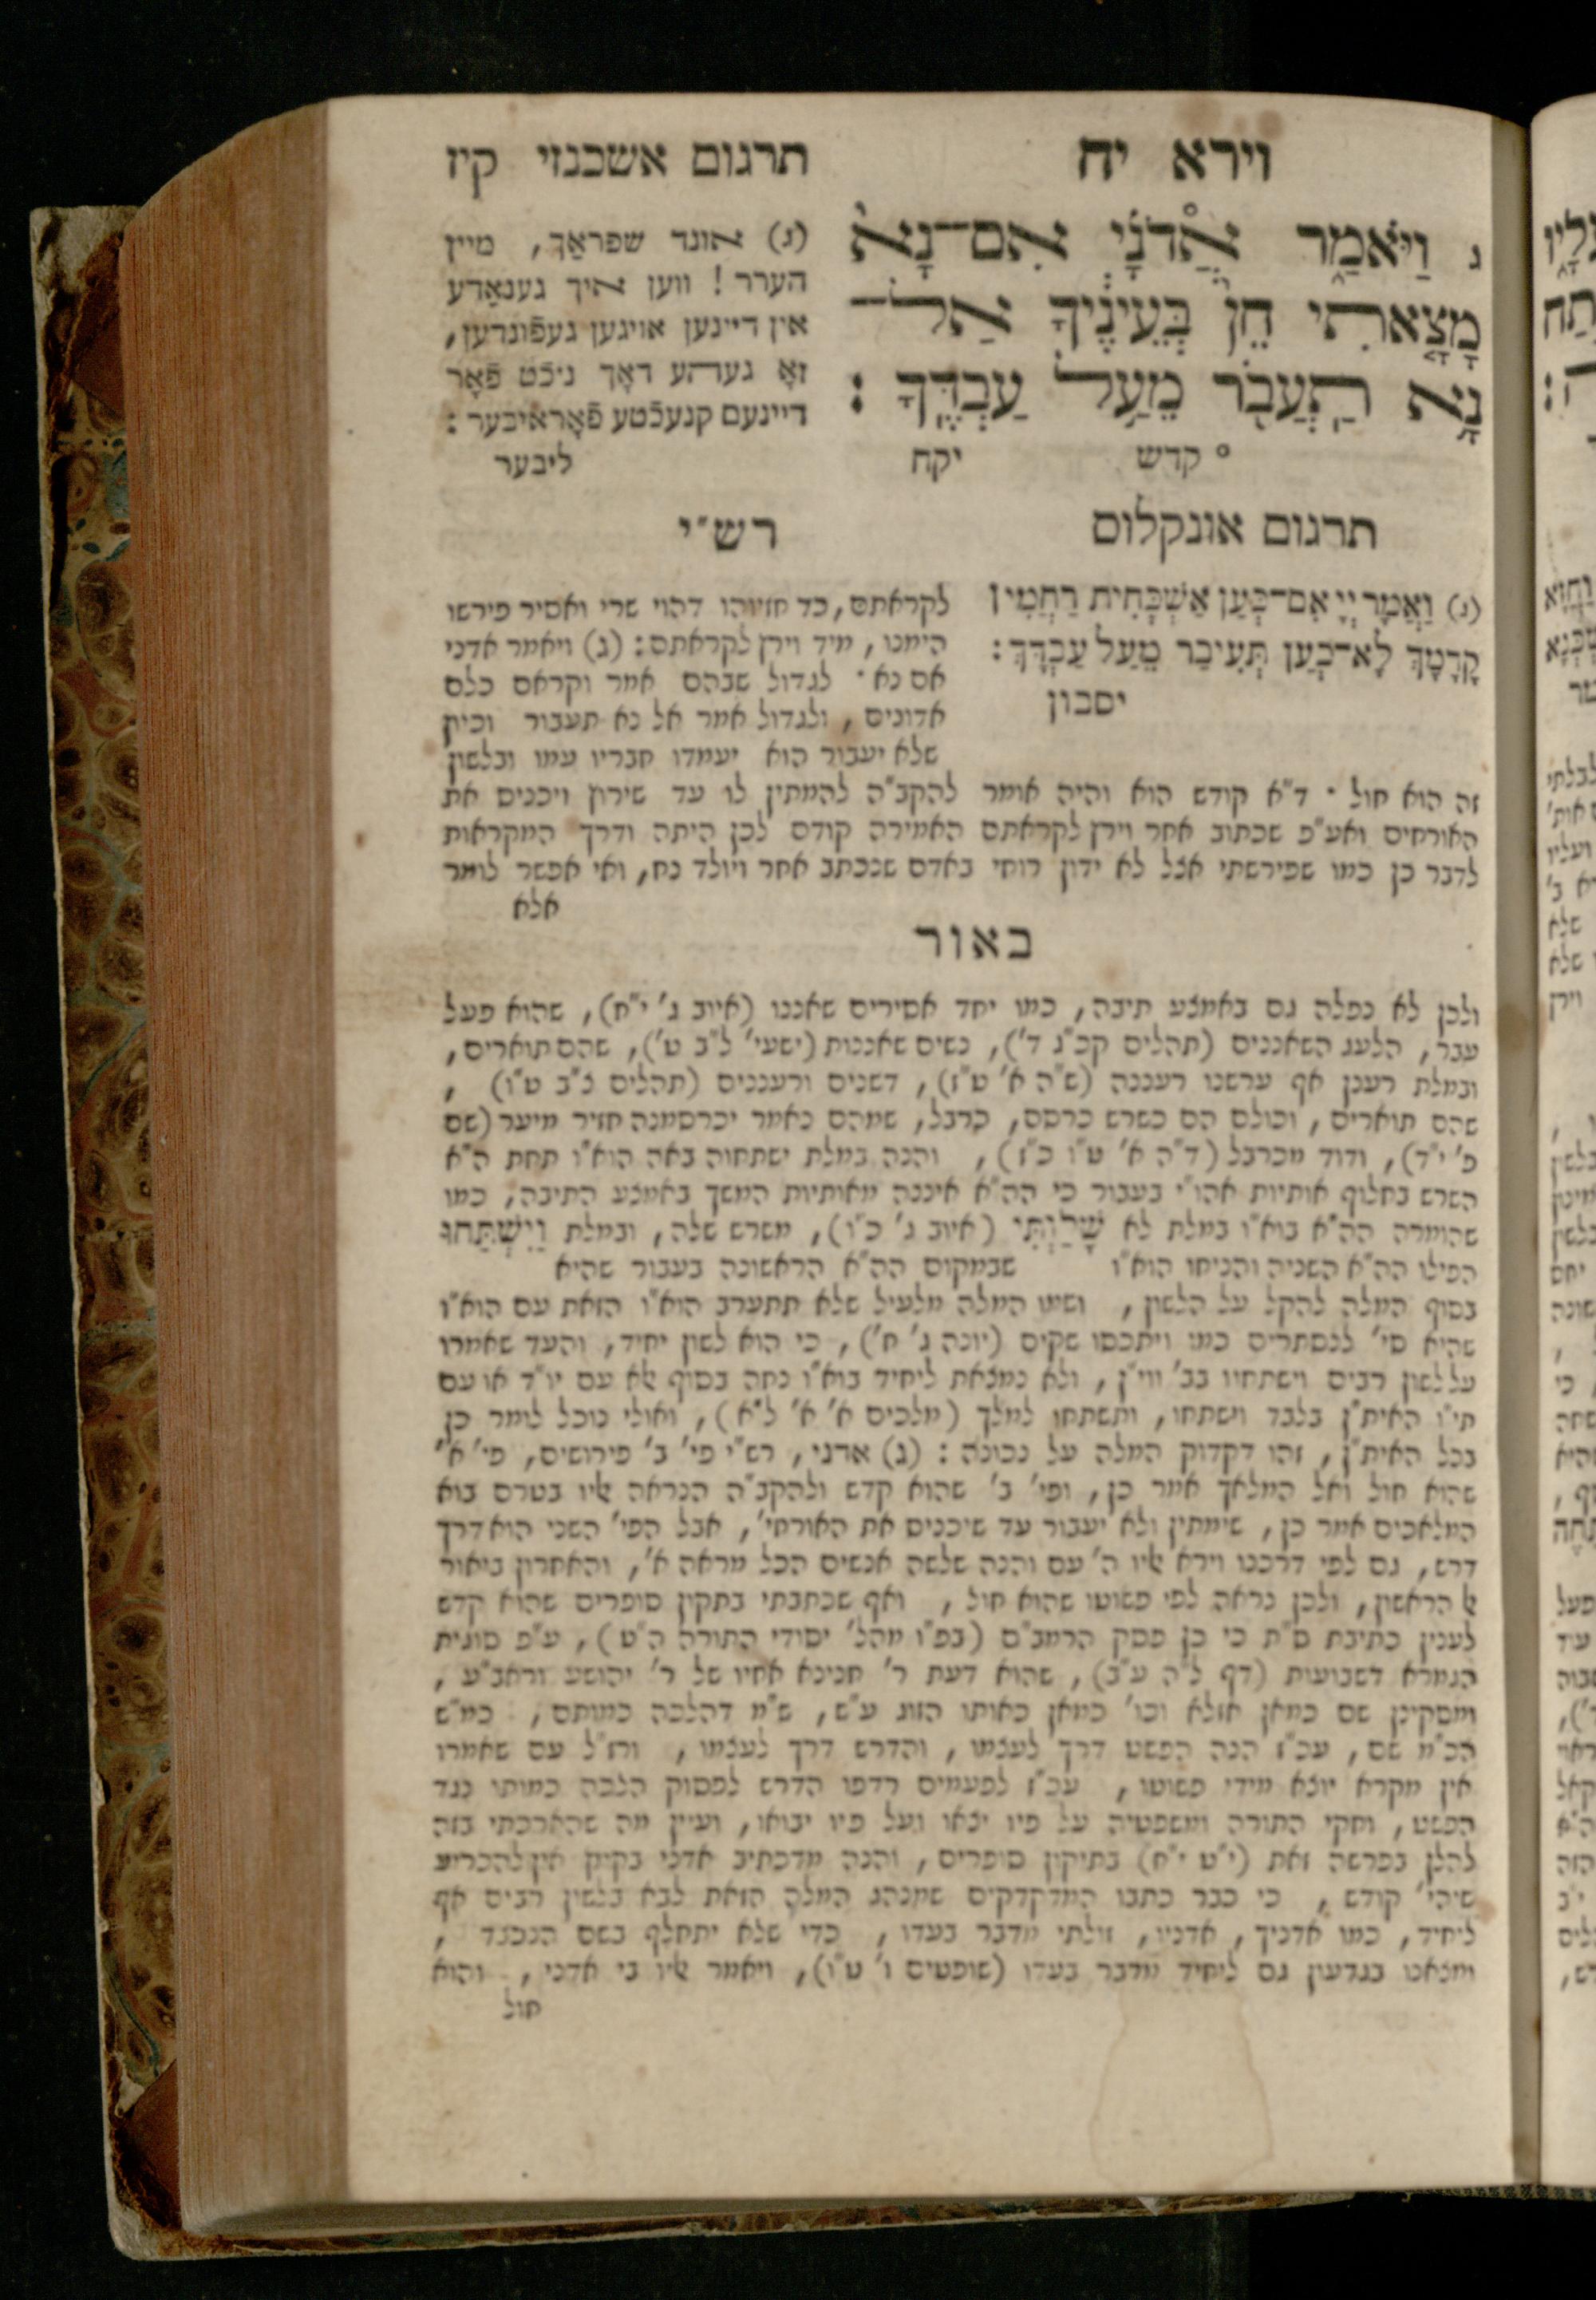 וירא יח
תרגום אשכנזי קיז
ג וַיֹּאמַ֑ר אֲדֹנָ֗י אִם־נָ֨א
מָצָ֤אתִי חֵן֙ בְּעֵינֶ֔יךָ אַל־
נָ֥א תַעֲבֹ֖ר מֵעַ֥ל עַבְדֶּֽךָ :
° קדש יקח
(ג) אונד שפראַך, מיין
הערר ! ווען איך גענאַדע
אין דיינען אויגען געפֿונדען,
זאָ געהע דאָך ניכֿט פֿאָר
דיינעם קנעכֿטע פֿאָראיבער :
ליבער
תרגום אונקלוס
(ג) וַאֲמָר יְיָ אִם־כְּעַן אַשְׁכָּחִית רַחֲמִין
קֳדָמָךְ לָא־כְעַן תְּעִיבַר מֵעַל עַבְדָּךְ :
יסבון
רש״י
לקראתם, כד חזיוהו דהוי שרי ואסיר פירשו
הימנו, מיד וירץ לקראתם: (ג) ויאמר אדני
אם נא ׳ לגדול שבהם אמר וקראם כלם
אדונים, ולגדול אמר אל נא תעבור וכיון
שלא יעבור הוא יעמדו חבריו עמו ובלשון
זה הוא חול ׳ ד״א קודש הוא והיה אומר להקב״ה להמתין לו עד שירוץ ויכניס את
האורחים ואע״פ שכתוב אחר וירץ לקראתם האמירה קודם לכן היתה ודרך המקראות
לדבר כן כמו שפירשתי אצל לא ידון רוחי באדם שנכתב אחר ויולד נח, ואי אפשר לומר
אלא
באור
ולכן לא נפלה גם באמצע תיבה, כמו יחד אסירים שאננו (איוב ג׳ י״ח), שהוא פעל
עבר, הלעג השאננים (תהלים קכ״ג ד׳), נשים שאננות (ישעי׳ ל״ב ט׳), שהם תוארים,
ובמלת רענן אף ערשנו רעננה (ש״ה א׳ ט״ז), דשנים ורעננים (תהלים צ״ב ט״ו) ,
שהם תוארים, וכולם הם כשרש כרסם, כרבל, שמהם נאמר יכרסמנה חזיר מיער (שם
פ׳ י״ד), ודוד מכרבל (ד״ה א׳ ט״ו כ״ז), והנה במלת ישתחוה באה הוא״ו תחת ה״א
השרש בחלוף אותיות אהו״י בעבור כי הה״א איננה מאותיות המשך באמצע התיבה, כמו
שהומרה הה״א בוא״ו במלת לא שָׁלַוְתִּי (איוב ג׳ כ״ו), משרש שלה, ובמלת וַיִּשְׁתַּחוּ
הפילו הה״א השניה והניחו הוא״ו שבמקום הה״א הראשונה בעבור שהיא
בסוף המלה להקל על הלשון, ושמו המלה מלעיל שלא תתערב הוא״ו הזאת עם הוא״ו
שהיא סי׳ לנסתרים כמו ויתכסו שקים (יונה ג׳ ח׳), כי הוא לשון יחיד, והעד שאמרו
על לשון רבים וישתחוו בב׳ ווי״ן, ולא נמצאת ליחיד בוא״ו נחה בסוף אלא עם יו״ד או עם
תי״ו האית״ן בלבד וישתחו, ותשתחו למלך (מלכים א׳ א׳ ל״א), ואולי נוכל לומר כן
בכל האית״ן, זהו דקדוק המלה על נכונה : (ג) אדני, רש״י פי׳ ב׳ פירושים, פי׳ א׳
שהוא חול ואל המלאך אמר כן, ופי׳ ב׳ שהוא קדש ולהקב״ה הנראה אליו בטרם בוא
המלאכים אמר כן, שימתין ולא יעבור עד שיכניס את האורחי׳, אבל הפי׳ השני הוא דרך
דרש, גם לפי דרכנו וירא אליו ה׳ עם והנה שלשה אנשים הכל מראה א׳, והאחרון ביאור
אל הראשון, ולכן נראה לפי פשוטו שהוא חול, ואף שכתבתי בתקון סופרים שהוא קדש
לענין כתיבת ס״ת כי כן פסק הרמב״ם (בפ״ו מהל׳ יסודי התורה ה״ט), ע״פ סוגית
הגמרא דשבועות (דף ל״ה ע״ב), שהוא דעת ר׳ חנינא אחיו של ר׳ יהושע וראב״ע,
ומסקינן שם כמאן אזלא וכו׳ כמאן כאותו הזוג ע״ש, ש״מ דהלכה כמותם, כמ״ש
הכ״מ שם, עכ״ז הנה הפשט דרך לעצמו, והדרש דרך לעצמו, ורז״ל עם שאמרו
אין מקרא יוצא מידי פשוטו, עכ״ז לפעמים רדפו הדרש לפסוק הלכה כמותו נגד
הפשט, וחקי התורה ומשפטיה על פיו יצאו ועל פיו יבואו, ועיין מה שהארכתי בזה
להלן בפרשה זאת (י״ט י״ח) בתיקון סופרים, והנה מדכתיב אדני בקמץ אין להכריע
שיהי׳ קודש, כי כבר כתבו המדקדקים שמנהג המלה הזאת לבא בלשון רבים אף
ליחיד, כמו אדניך, אדניו, זולתי מדבר בעדו, כדי שלא יתחלף בשם הנכבד,
ומצאנו בגדעון גם ליחיד מדבר בעדו (שופטים ו׳ ט״ו), ויאמר אליו בי אדני, והוא
חול